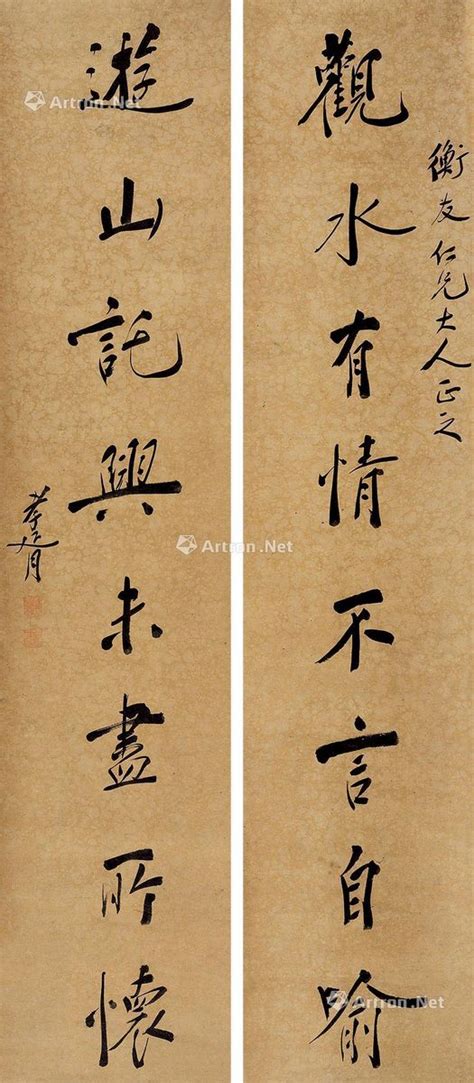 衡友仁兄大人正之
觀水有情不言自喻
遊山託興未盡所懷
孝胥
Artron.Net
Artron.Net
Artron.Net